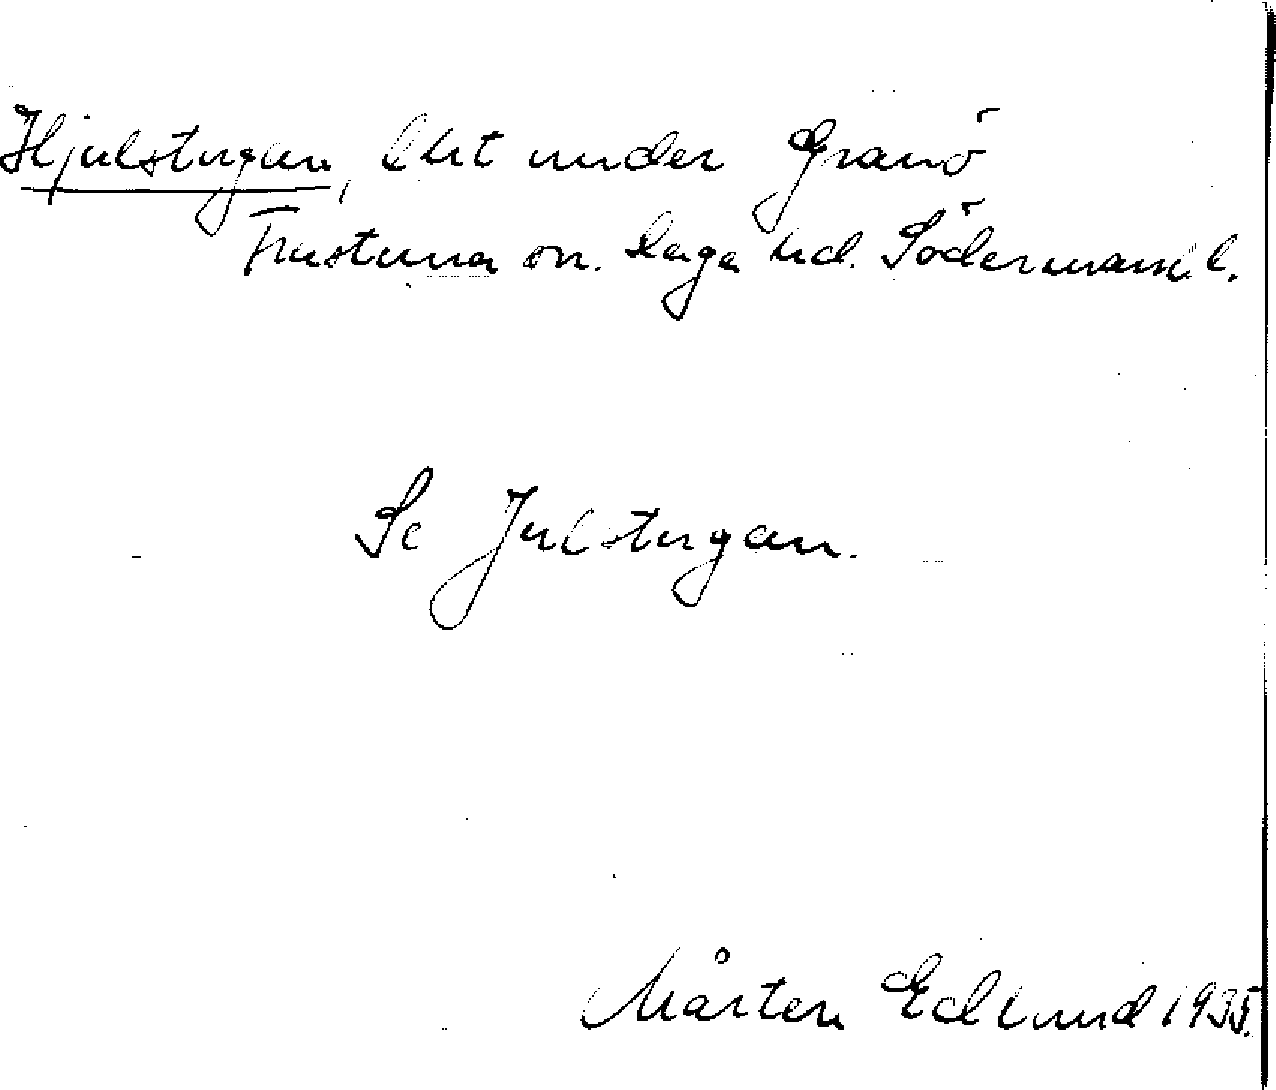 Hjulstugan, lht under Granö
Frustuna sn. Daga hd. Södermanl.
Se Julstugan.
Mårten Edlund 1935.